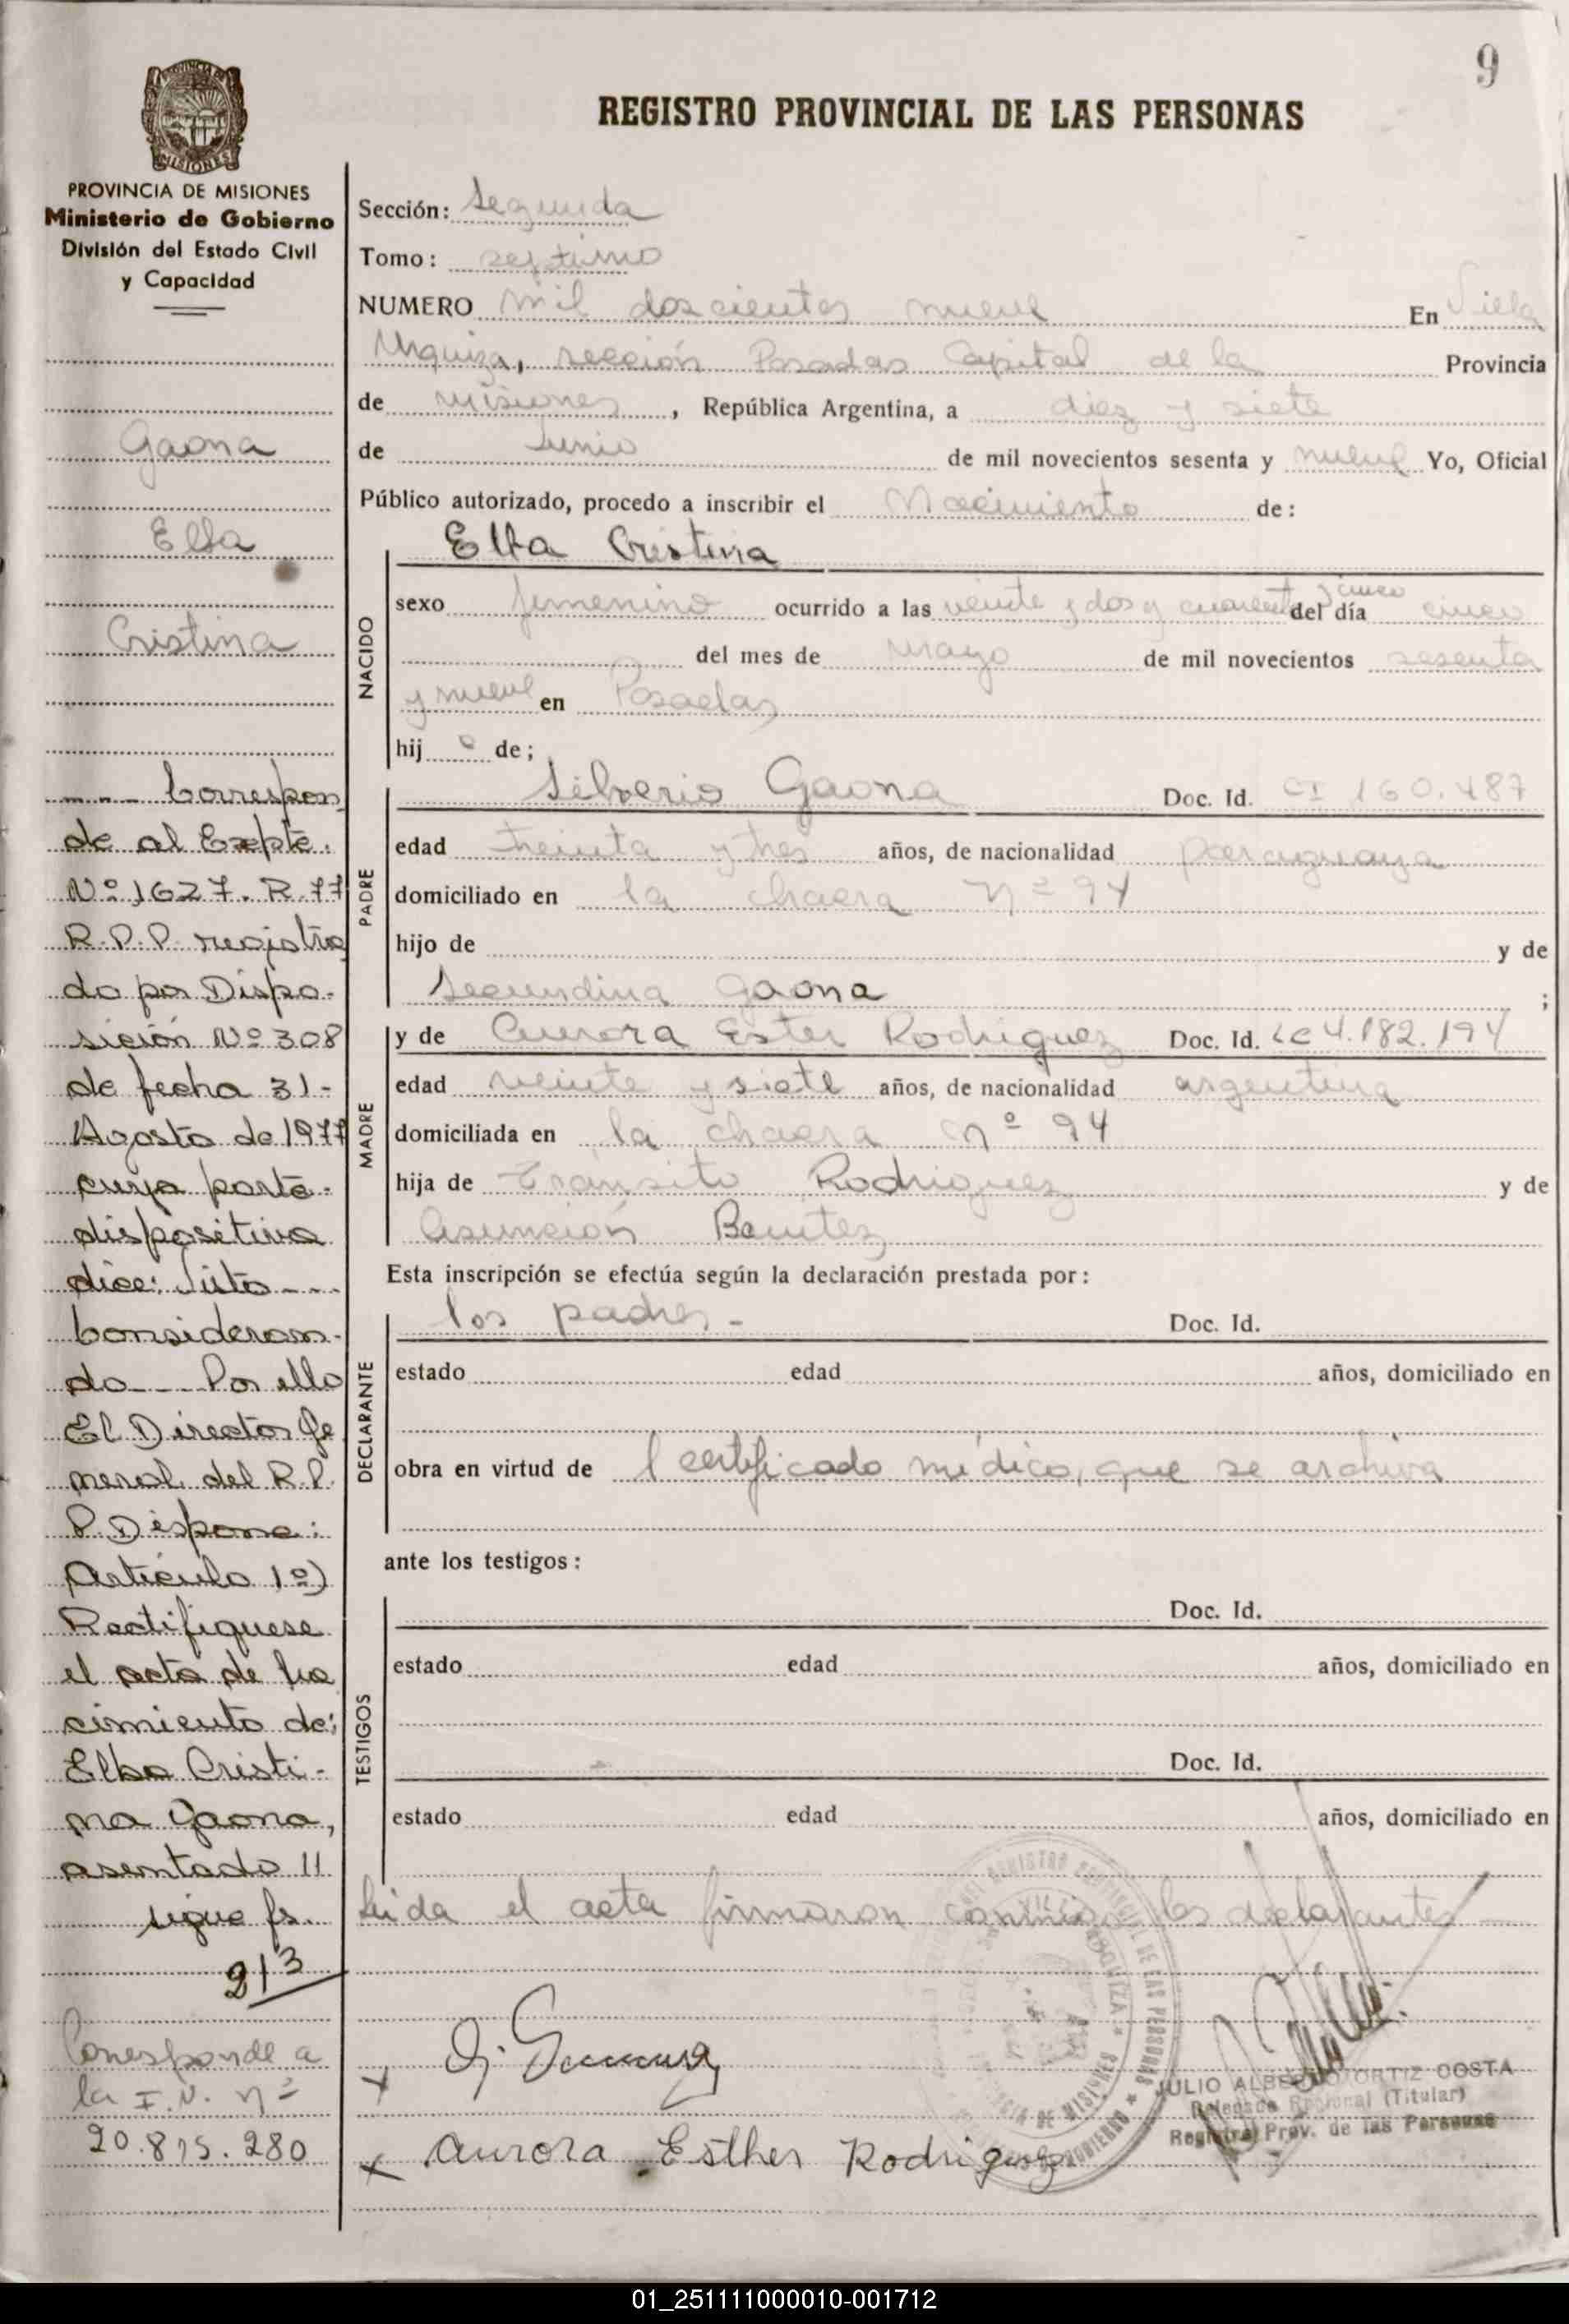 9
REGISTRO PROVINCIAL DE LAS PERSONAS
PROVINCIA DE MISIONES
Ministerio de Gobierno
División del Estado Civil
y Capacidad
Gaona
Elba
Cristina
---- Correspon
de al Expte.
Nº 1627. R. 77
R.P.P. registra
do por Dispo-
sición Nº 308
de fecha 31-
Agosto de 1977
cuya parte-
dispositiva
dice: Visto ---
Consideran-
do --- Por ello
El Director Ge
neral del R.P.
P. Dispone:
Artículo 1º)
Rectifiquese
el acta de na
cimiento de:
Elba Cristi-
na Gaona,
asentado 11
sigue fs.
213
Corresponde a
la I.N. nº
20.815.280
Sección: Segunda
Tomo: septimo
NUMERO mil doscientos nueve En Villa
Urquiza, sección Posadas Capital de la Provincia
de Misiones, República Argentina, a diez y siete
de Junio de mil novecientos sesenta y nueve Yo, Oficial
Público autorizado, procedo a inscribir el Nacimiento de:
NACIDO
Elba Cristina
sexo femenino ocurrido a las veinte y dos y cuarenta y cinco del día cinco
del mes de Mayo de mil novecientos sesenta
y nueve en Posadas
hij a de;
PADRE
Silverio Gaona Doc. Id. CI 160.487
edad treinta y tres años, de nacionalidad paraguaya
domiciliado en la chacra nº 94
hijo de y de
Secundina Gaona ;
MADRE
y de Aurora Ester Rodriguez Doc. Id. LC 4.182.194
edad veinte y siete años, de nacionalidad argentina
domiciliada en la chacra nº 94
hija de Tránsito Rodriguez y de
Asunción Benitez
Esta inscripción se efectúa según la declaración prestada por:
DECLARANTE
los padres - Doc. Id.
estado edad años, domiciliado en
obra en virtud de l certificado médico, que se archiva
ante los testigos:
TESTIGOS
Doc. Id.
estado edad años, domiciliado en
Doc. Id.
estado edad años, domiciliado en
Leida el acta firmaron conmigo los declarantes
Aurora Esther Rodriguez
JULIO ALBERTO ORTIZ COSTA
Delegado Regional (Titular)
Registro Prov. de las Personas
01_251111000010-001712